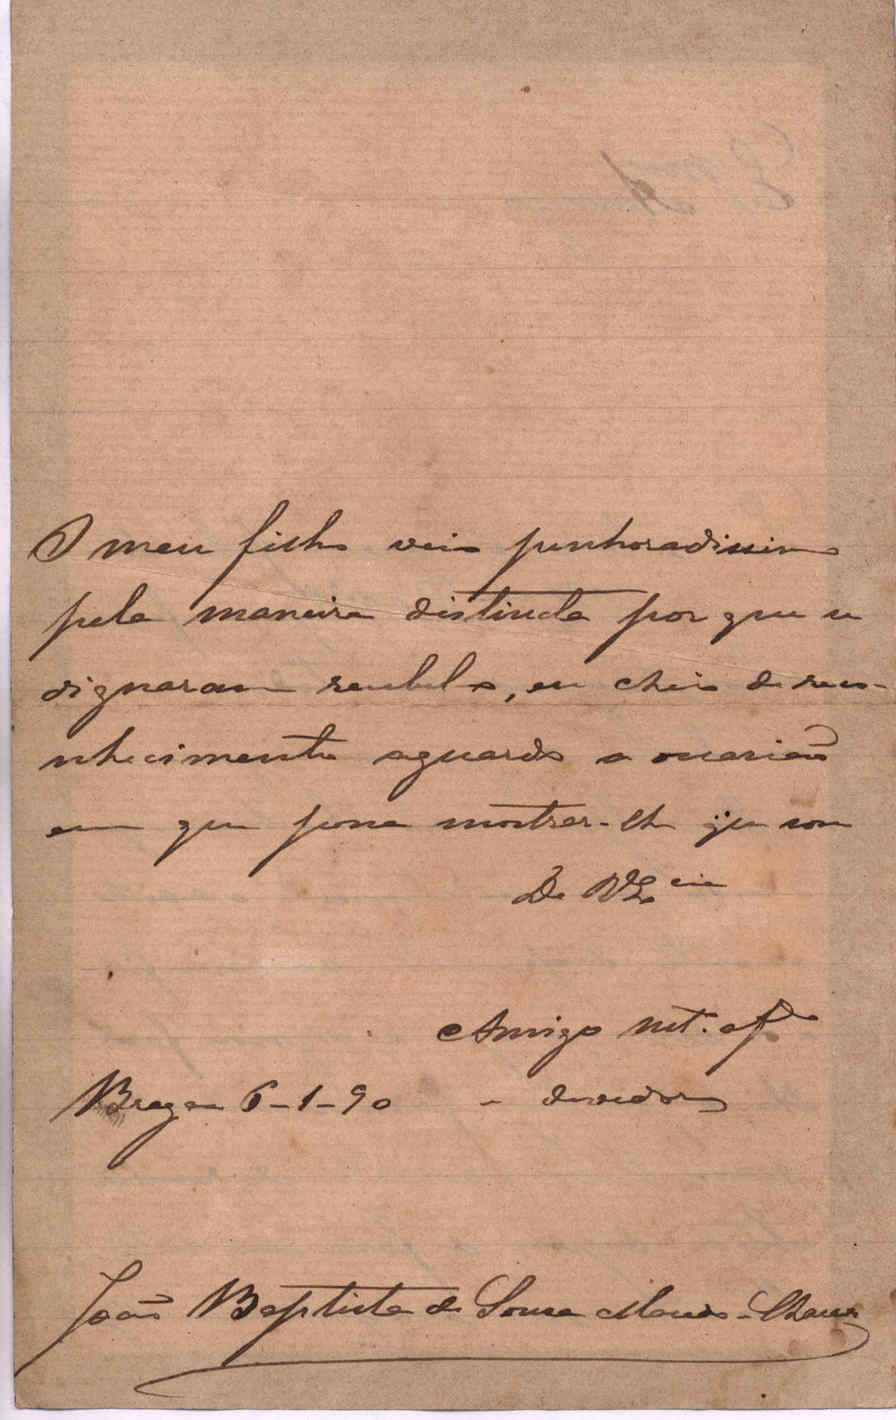 O meu filho veio penhoradissimo
pela maneira distincta por que se
dignaram recebel-o, eu cheio de reco-
nhecimento aguardo a occasião
em que possa mostrar-lh que sou
De V Ex.cia
Amigo mt.º af.do
Braga 6-1-90 e devedor
João Baptista de Sousa Macedo Chaves